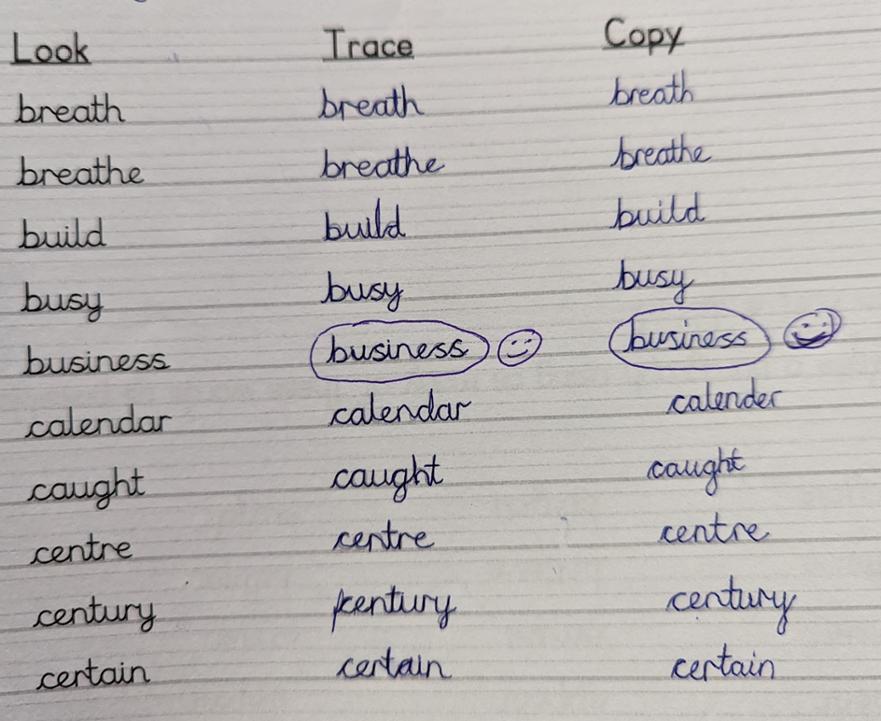 Look Trace Copy
breath breath breath
breathe breathe breathe
build build build
busy busy busy
business business business
calendar calendar calender
caught caught caught
centre centre centre
century century century
certain certain certain